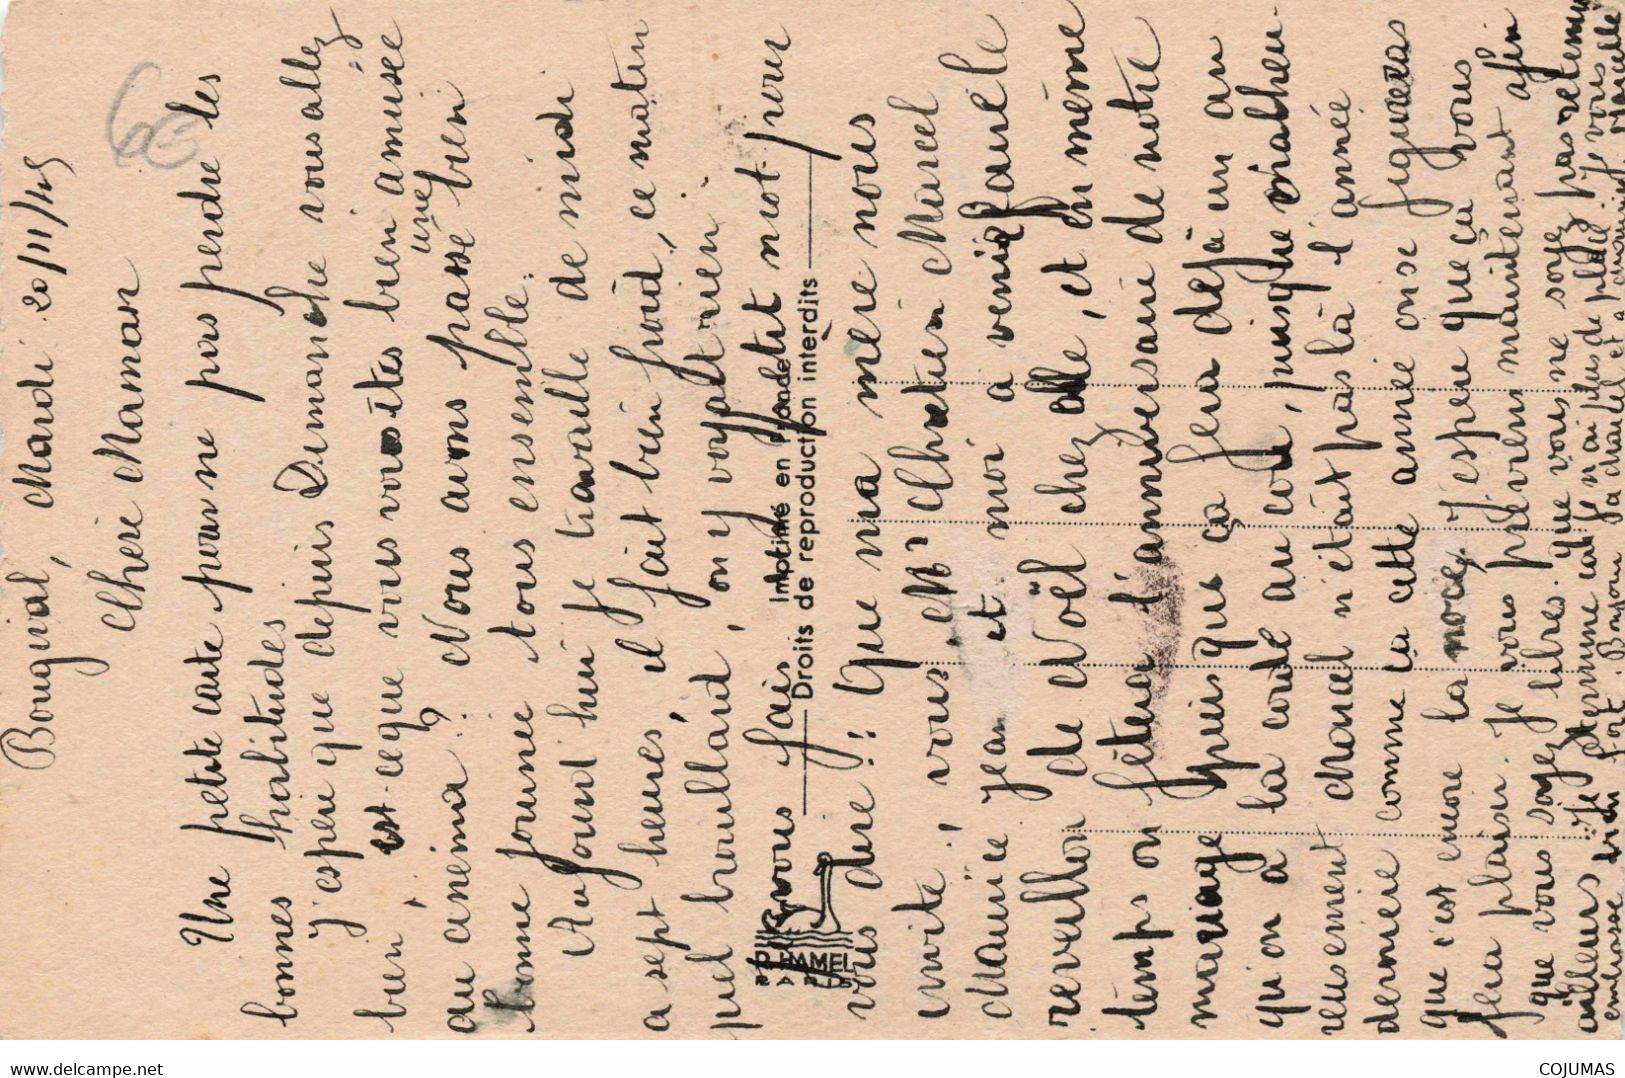 Bougival, Mardi 20/11/45
Chère Maman
Une petite carte pour ne pas perdre les
bonnes habitudes
J'espère que depuis Dimanche vous allez
bien, est-ce que vous vous êtes bien amusée
au cinéma? Nous avons passé bien
une
bonne journée tous ensemble.
Aujourd'hui je travaille de midi
a sept heures, il fait bien froid, ce matin
quel brouillard, on y voyait rien.
Je vous fais un petit mot pour
vous dire: Que ma mère nous
invite, vous, Mr Chretien Marcel
Maurice Jean et moi a venir faire le
reveillon de Noël chez elle, et en même
temps on fêtera l'anniversaire de notre
mariage puisque ça fera déjà un an
qu'on a la corde au cou, puisque malheu-
reusement Marcel n'était pas là l'année
dernière comme ça cette année on se figureras
que c'est encore la noce, J'espère que ça vous
fera plaisir. Je vous préviens maintenant afin
que vous soyez libres. que vous ne soyez pas retenus
ailleurs. Je termine car je n'ai plus de place Je vous
embrasse bien fort. Bonjour à Marcelle
D. HAMEL
PARIS
Imprimé en France
Droits de reproduction interdits
60
delcampe.net
COJUMAS